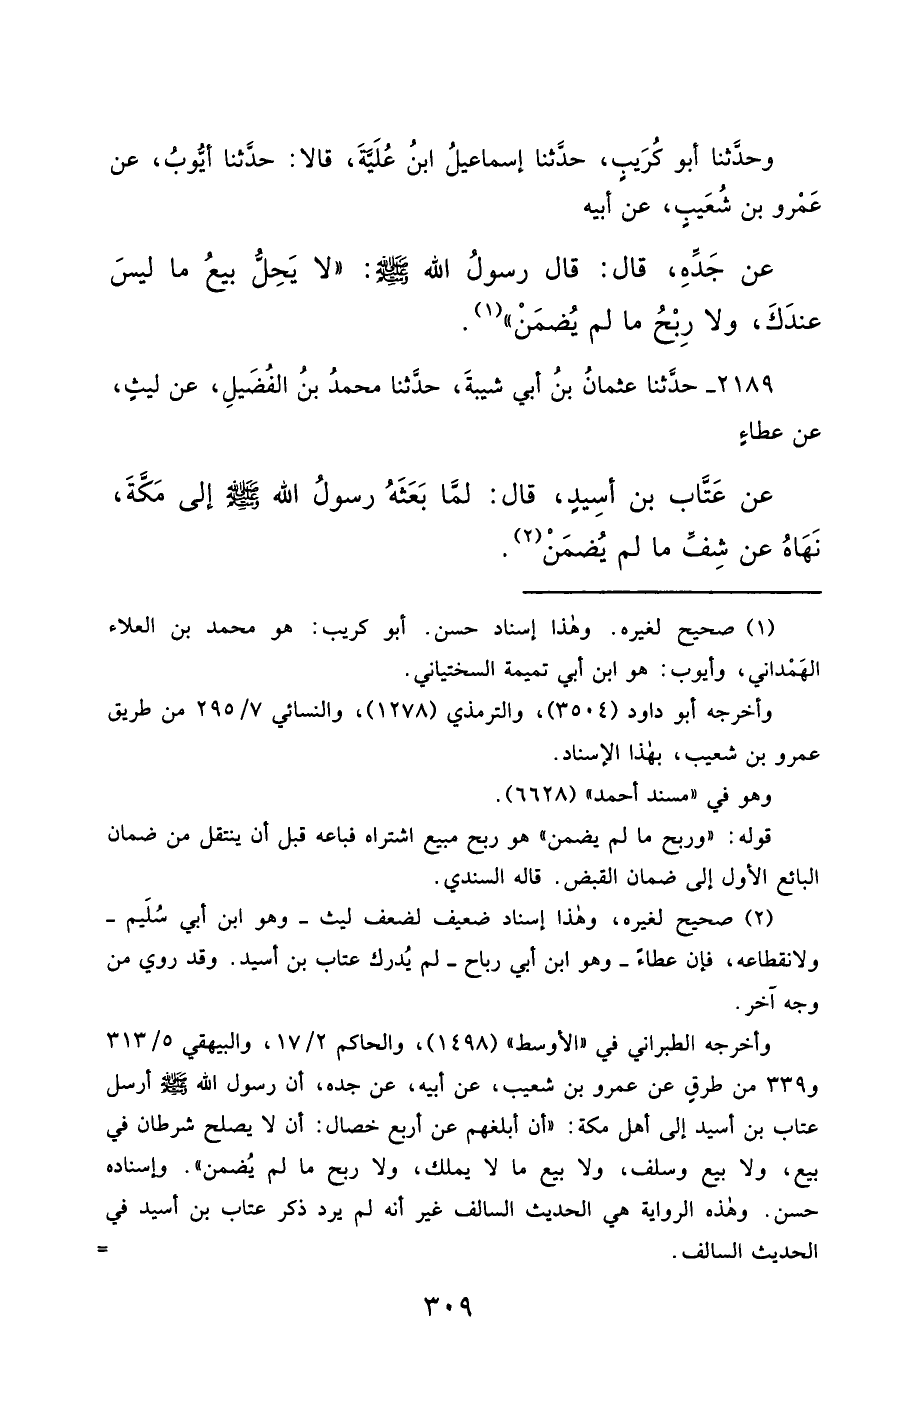 وحدَّثنا أبو كُرَيبٍ، حدَّثنا إسماعيلُ ابنُ عُلَيَّةَ، قالا: حدَّثنا أيُّوبُ، عن
عَمْرو بن شُعَيبٍ، عن أبيه
عن جَدِّهِ، قال: قال رسولُ الله ﷺ: «لا يَحِلُّ بيعُ ما ليسَ
عندَكَ، ولا رِبْحُ ما لم يُضمَنْ»(١).
٢١٨٩ـ حدَّثنا عثمانُ بنُ أبي شيبةَ، حدَّثنا محمدُ بنُ الفُضَيلِ، عن ليثٍ،
عن عطاءٍ
عن عَتَّاب بن أسِيدٍ، قال: لمَّا بَعَثَهُ رسولُ الله ﷺ إلى مَكَّةَ،
نَهَاهُ عن شِفِّ ما لم يُضمَنْ(٢).
(١) صحيح لغيره. وهٰذا إسناد حسن. أبو كريب: هو محمد بن العلاء
الهَمْداني، وأيوب: هو ابن أبي تميمة السختياني.
وأخرجه أبو داود (٣٥٠٤)، والترمذي (١٢٧٨)، والنسائي ٢٩٥/٧ من طريق
عمرو بن شعيب، بهٰذا الإسناد.
وهو في «مسند أحمد» (٦٦٢٨).
قوله: «وربح ما لم يضمن» هو ربح مبيع اشتراه فباعه قبل أن ينتقل من ضمان
البائع الأول إلى ضمان القبض. قاله السندي.
(٢) صحيح لغيره، وهٰذا إسناد ضعيف لضعف ليث ـ وهو ابن أبي سُلَيم ـ
ولانقطاعه، فإن عطاءً ـ وهو ابن أبي رباح ـ لم يُدرك عتاب بن أسيد. وقد روي من
وجه آخر.
وأخرجه الطبراني في «الأوسط» (١٤٩٨)، والحاكم ١٧/٢، والبيهقي ٣١٣/٥
و٣٣٩ من طرقٍ عن عمرو بن شعيب، عن أبيه، عن جده، أن رسول الله ﷺ أرسل
عتاب بن أسيد إلى أهل مكة: «أن أبلغهم عن أربع خصال: أن لا يصلح شرطان في
بيع، ولا بيع وسلف، ولا بيع ما لا يملك، ولا ربح ما لم يُضمن». وإسناده
حسن. وهٰذه الرواية هي الحديث السالف غير أنه لم يرد ذكر عتاب بن أسيد في
الحديث السالف. =
٣٠٩